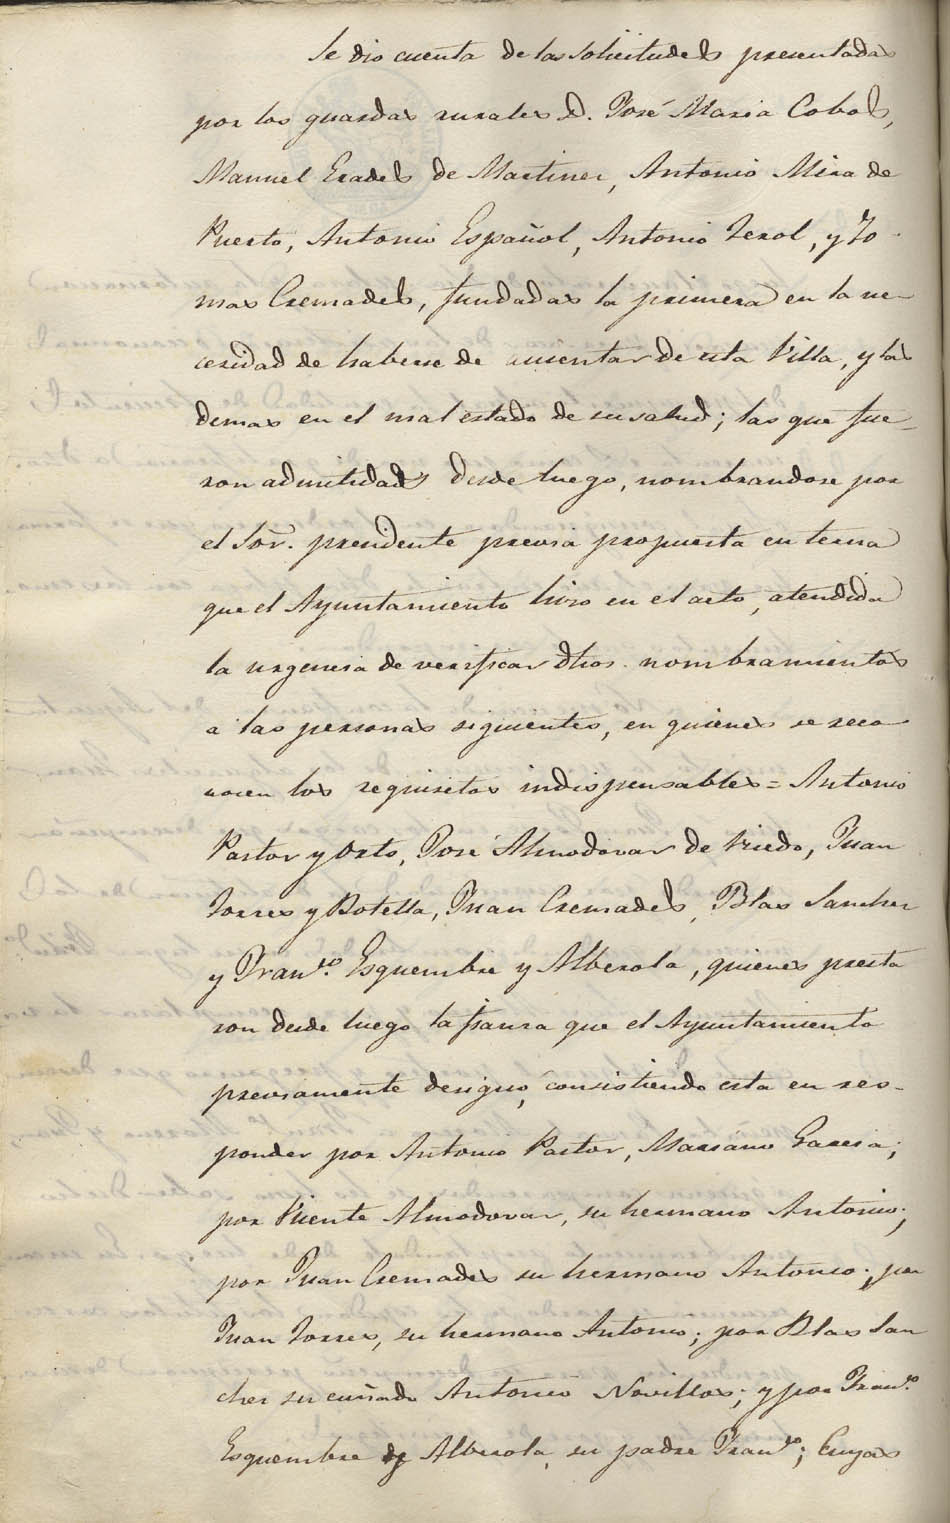 Se dio cuenta de las solicitudes presentadas
por los guardas rurales D. José Maria Cobos,
Manuel Eradés de Martinez, Antonio Mira de
Puerto, Antonio Español, Antonio Terol, y To-
mas Cremades, fundadas la primera en la ne-
cesidad de haberse de ausentar de esta Villa, y las
demas en el mal estado de su salud; las que fue-
ron admitidas desde luego, nombrandose por
el Sor. presidente previa propuesta en terna
que el Ayuntamiento hizo en el acto, atendida
la urgencia de verificar dhos. nombramientos
a las personas siguientes, en quienes se reco-
nocen los requisitos indispensables = Antonio
Pastor y Orts, José Almodovar de Viedo, Juan
Torres y Botella, Juan Cremades, Blas Sanchez
y Franco. Esquembre y Alberola, quienes presta
ron desde luego la fianza que el Ayuntamiento
previamente designó, consistiendo esta en res-
ponder por Antonio Pastor, Mariano Garcia;
por Vicente Almodovar, su hermano Antonio;
por Juan Cremades su hermano Antonio; por
Juan Torres, su hermano Antonio; por Blas San
chez su cuñado Antonio Novillos; y por Franco.
Esquembre y Alberola, su padre Franco.; Cuyas